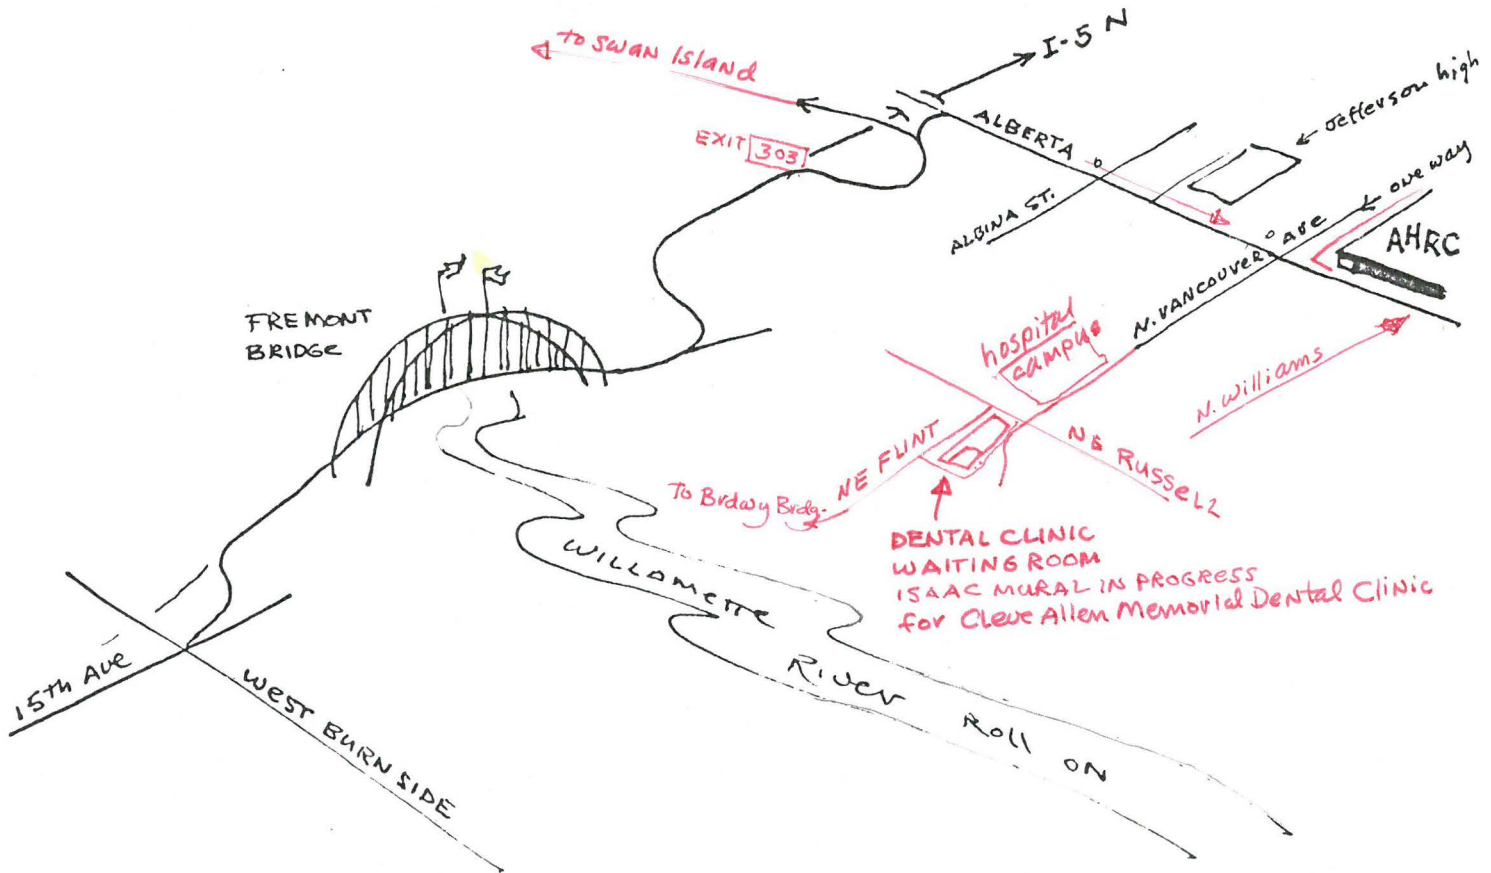 to SWAN ISLAND
I-5 N
EXIT 303
ALBERTA
Jefferson high
ALBINA ST.
one way
N. VANCOUVER AVE
AHRC
FREMONT
BRIDGE
hospital
campus
N. Williams
NE FLINT
NE RUSSELL
To Brdwy Brdg.
DENTAL CLINIC
WAITING ROOM
ISAAC MURAL IN PROGRESS
for Cleve Allen Memorial Dental Clinic
WILLAMETTE
RIVER ROLL ON
15th Ave
WEST BURNSIDE